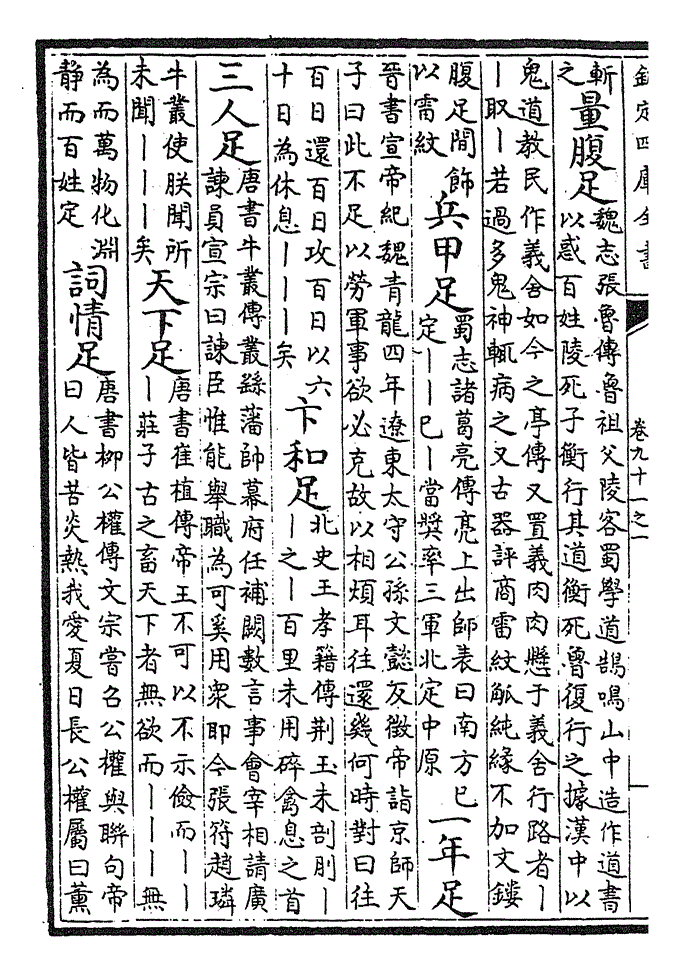 欽定四庫全書
卷九十一之一
斬
之
量腹足
魏志張魯傳魯祖父陵客蜀學道鵠鳴山中造作道書
以惑百姓陵死子衡行其道衡死魯復行之據漢中以
鬼道教民作義舍如今之亭傳又置義肉肉懸于義舍行路者丨
丨取丨若過多鬼神輒病之又古器評商雷紋觚純緣不加文鏤
腹足間飾
以雷紋
兵甲足
蜀志諸葛亮傳亮上出師表曰南方已
定丨丨已丨當獎率三軍北定中原
一年足
晉書宣帝紀魏青龍四年遼東太守公孫文懿反徵帝詣京師天
子曰此不足以勞軍事欲必克故以相煩耳往還幾何時對曰往
百日還百日攻百日以六
十日為休息丨丨丨矣
卞和足
北史王孝籍傳荆玉未剖刖丨
丨之丨百里未用碎禽息之首
三人足
唐書牛叢傳叢繇藩帥幕府任補闕數言事會宰相請廣
諫員宣宗曰諫臣惟能舉職為可奚用衆即今張符趙璘
牛叢使朕聞所
未聞丨丨丨矣
天下足
唐書崔植傳帝王不可以不示儉而丨丨
丨莊子古之畜天下者無欲而丨丨丨無
為而萬物化淵
静而百姓定
詞情足
唐書柳公權傳文宗嘗召公權與聯句帝
曰人皆苦炎熱我愛夏日長公權屬曰薰